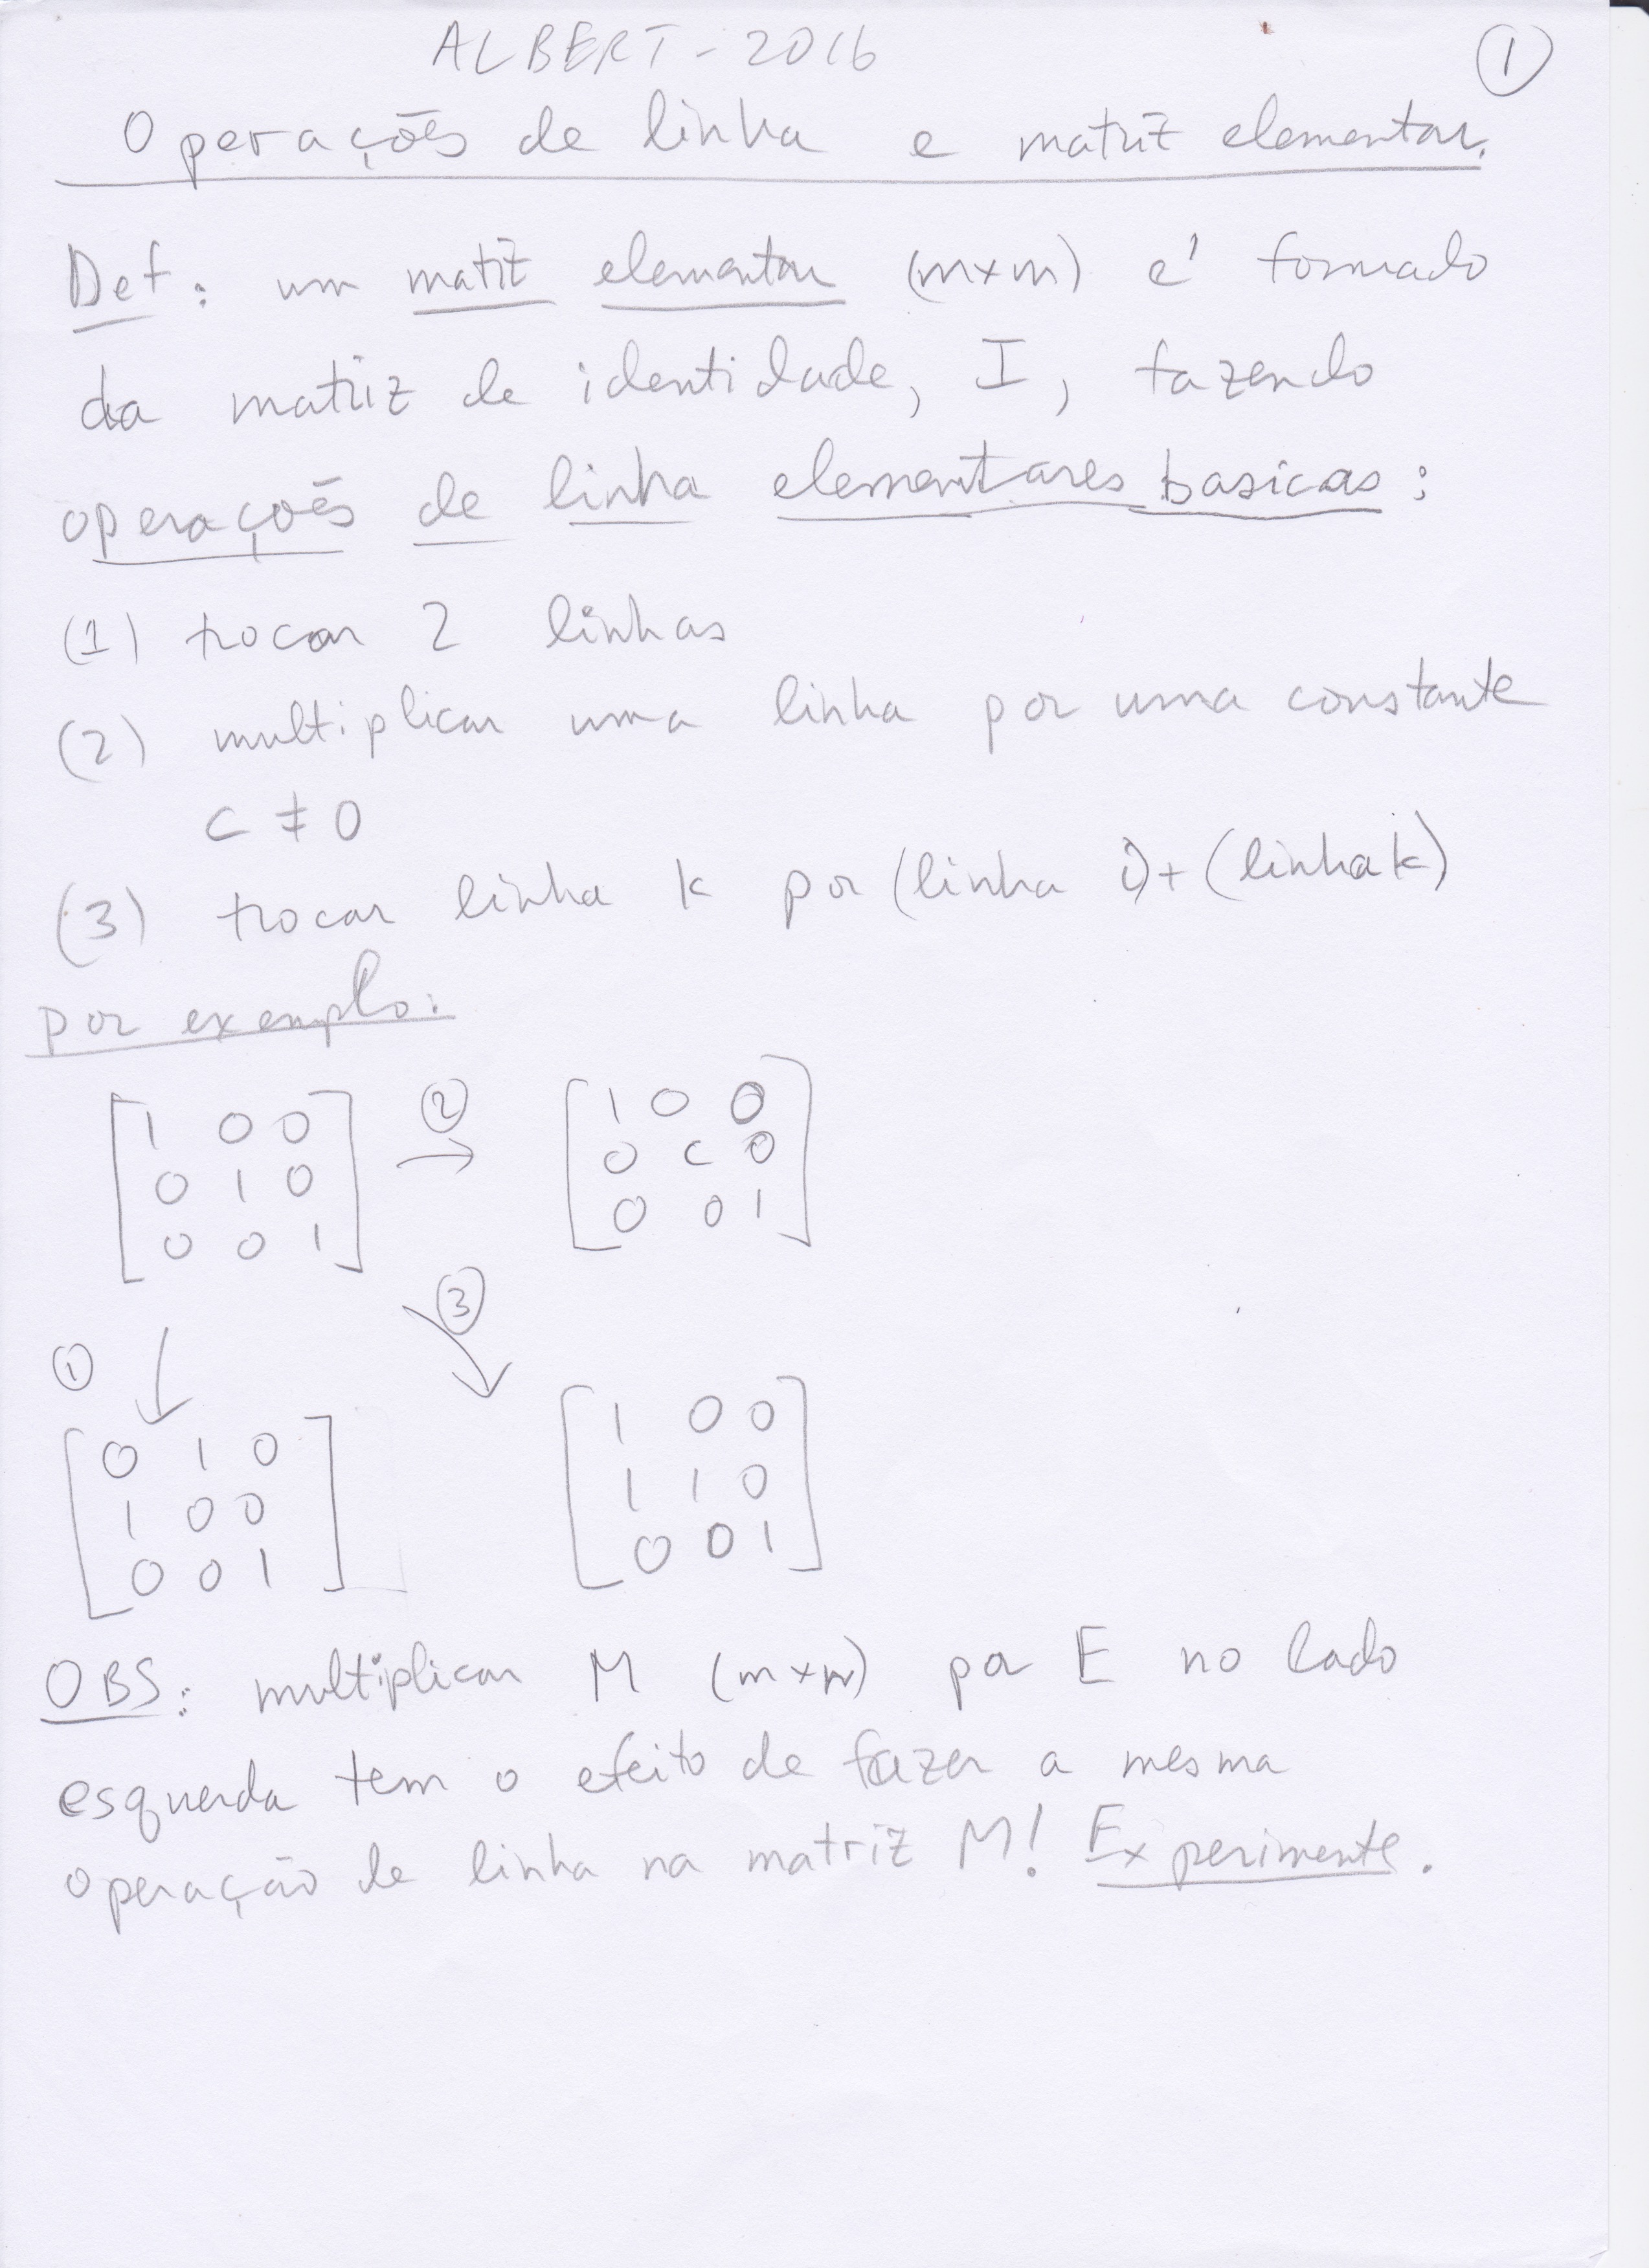 ALBERT - 2016
①
Operações de linha e matriz elementar.
Def: um matiz elementar (m×m) é formado
da matriz de identidade, I, fazendo
operações de linha elementares basicas:
(1) trocar 2 linhas
(2) multiplicar uma linha por uma constante
c ≠ 0
(3) trocar linha k por (linha i)+(linha k)
por exemplo:
1 0 0
0 1 0
0 0 1
②
→
1 0 0
0 c 0
0 0 1
③
①
0 1 0
1 0 0
0 0 1
1 0 0
1 1 0
0 0 1
OBS: multiplicar M (m×n) por E no lado
esquerda tem o efeito de fazer a mesma
operação de linha na matriz M! Experimente.